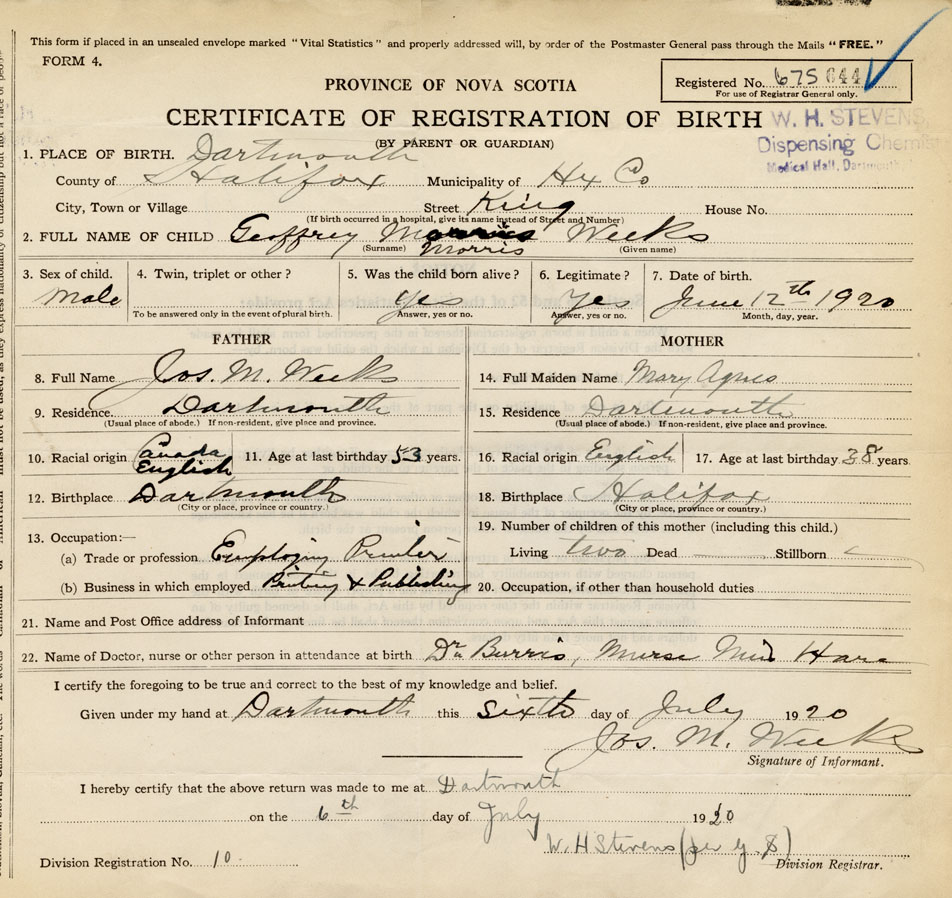 This form if placed in an unsealed envelope marked "Vital Statistics" and properly addressed will, by order of the Postmaster General pass through the Mails "FREE."
FORM 4.
PROVINCE OF NOVA SCOTIA
Registered No. 675 644
For use of Registrar General only.
CERTIFICATE OF REGISTRATION OF BIRTH
W. H. STEVENS,
Dispensing Chemist
Medical Hall, Dartmouth
(BY PARENT OR GUARDIAN)
1. PLACE OF BIRTH. Dartmouth
County of Halifax Municipality of Hx Co
City, Town or Village Street King House No.
(If birth occurred in a hospital, give its name instead of Street and Number)
2. FULL NAME OF CHILD Geoffrey Morris Weeks
(Surname) Morris (Given name)
3. Sex of child. 4. Twin, triplet or other? 5. Was the child born alive? 6. Legitimate? 7. Date of birth.
Male Yes Yes June 12th 1920
To be answered only in the event of plural birth. Answer, yes or no. Answer, yes or no. Month, day, year.
FATHER MOTHER
8. Full Name Jos. M. Weeks 14. Full Maiden Name Mary Agnes
9. Residence. Dartmouth 15. Residence Dartmouth
(Usual place of abode.) If non-resident, give place and province. (Usual place of abode.) If non-resident, give place and province.
10. Racial origin Canada English 11. Age at last birthday 53 years. 16. Racial origin English 17. Age at last birthday 38 years.
12. Birthplace Dartmouth 18. Birthplace Halifax
(City or place, province or country.) (City or place, province or country.)
13. Occupation:— 19. Number of children of this mother (including this child.)
(a) Trade or profession Employing Printer Living two Dead Stillborn
(b) Business in which employed Printing & Publishing 20. Occupation, if other than household duties
21. Name and Post Office address of Informant
22. Name of Doctor, nurse or other person in attendance at birth Dr. Burris, Nurse
I certify the foregoing to be true and correct to the best of my knowledge and belief.
Given under my hand at Dartmouth this sixth day of July 1920
Jos. M. Weeks
Signature of Informant.
I hereby certify that the above return was made to me at Dartmouth
on the 6th day of July 1920
W. H Stevens (per
Division Registration No. 10 Division Registrar.